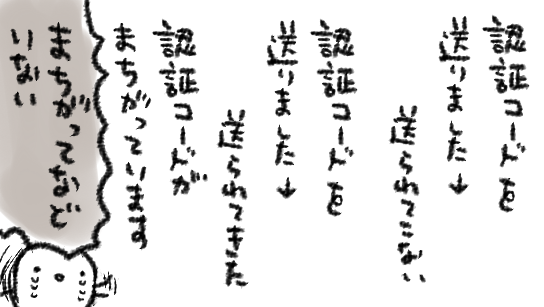 認証コードを
送りました↓
送られてこない
認証コードを
送りました↓
送られてきた
認証コードが
まちがっています
まちがってなど
いない